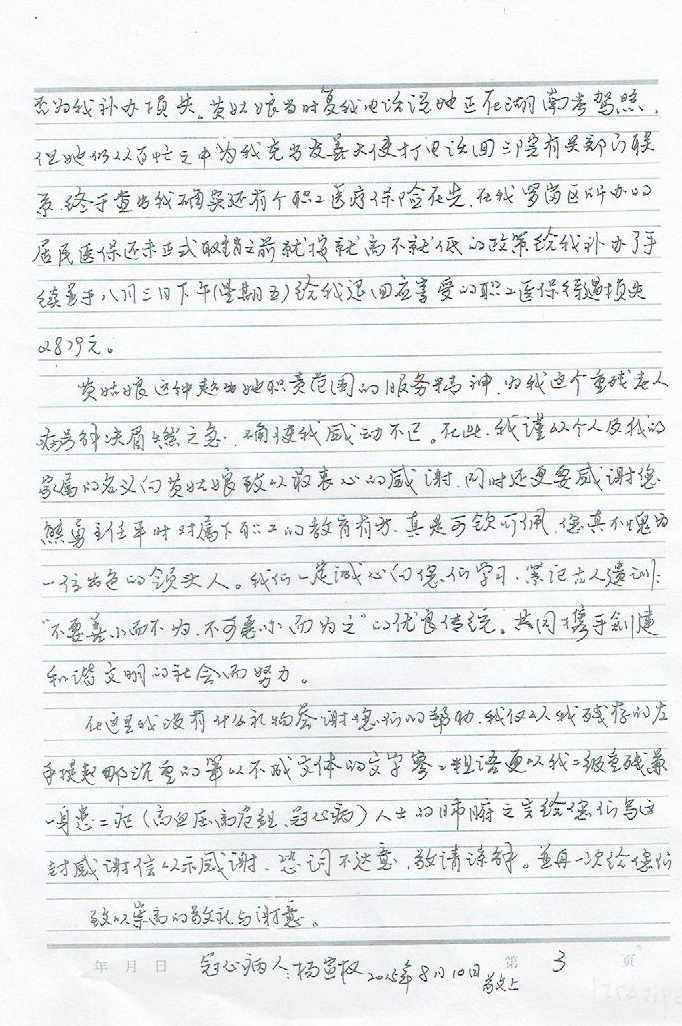 否为我补办损失。黄姑娘当时复我电话说她正在湖南考驾照，
但她仍以百忙之中为我充当友善大使打电话回三院有关部门联
系，终于查出我确实还有个职工医疗保险在先，在我罗岗区所办的
居民医保还未正式取销之前就按就高不就低的政策给我补办了手
续并于八月三日下午(星期五)给我退回应享受的职工医保待遇损失
2879元。
黄姑娘这种超出她职责范围的服务精神，为我这个重残老人
病号解决眉燃之急，确使我感动不已。在此，我谨以个人及我的
家属的名义向黄姑娘致以最衷心的感谢，同时还更要感谢您
熊勇主任平时对属下职工的教育有方，真是可钦可佩，您真不愧为
一位出色的领头人。我们一定诚心向您们学习，紧记古人遗训：
“不要善小而不为，不可恶小而为之”的优良传统。共同携手创建
和谐文明的社会而努力。
在这里我没有什么礼物答谢您们的帮助，我仅以我残存的左
手提起那沉重的笔以不成文体的文字寥二粗语更以我二级重残兼
一身患二症(高血压高危组、冠心病)人士的肺腑之言给您们写这
封感谢信以示感谢，恐词不达意，敬请谅解。并再一次给您们
致以崇高的敬礼与谢意。
年 月 日 冠心病人：杨宣权 2015年8月10日 敬上 第 3 页